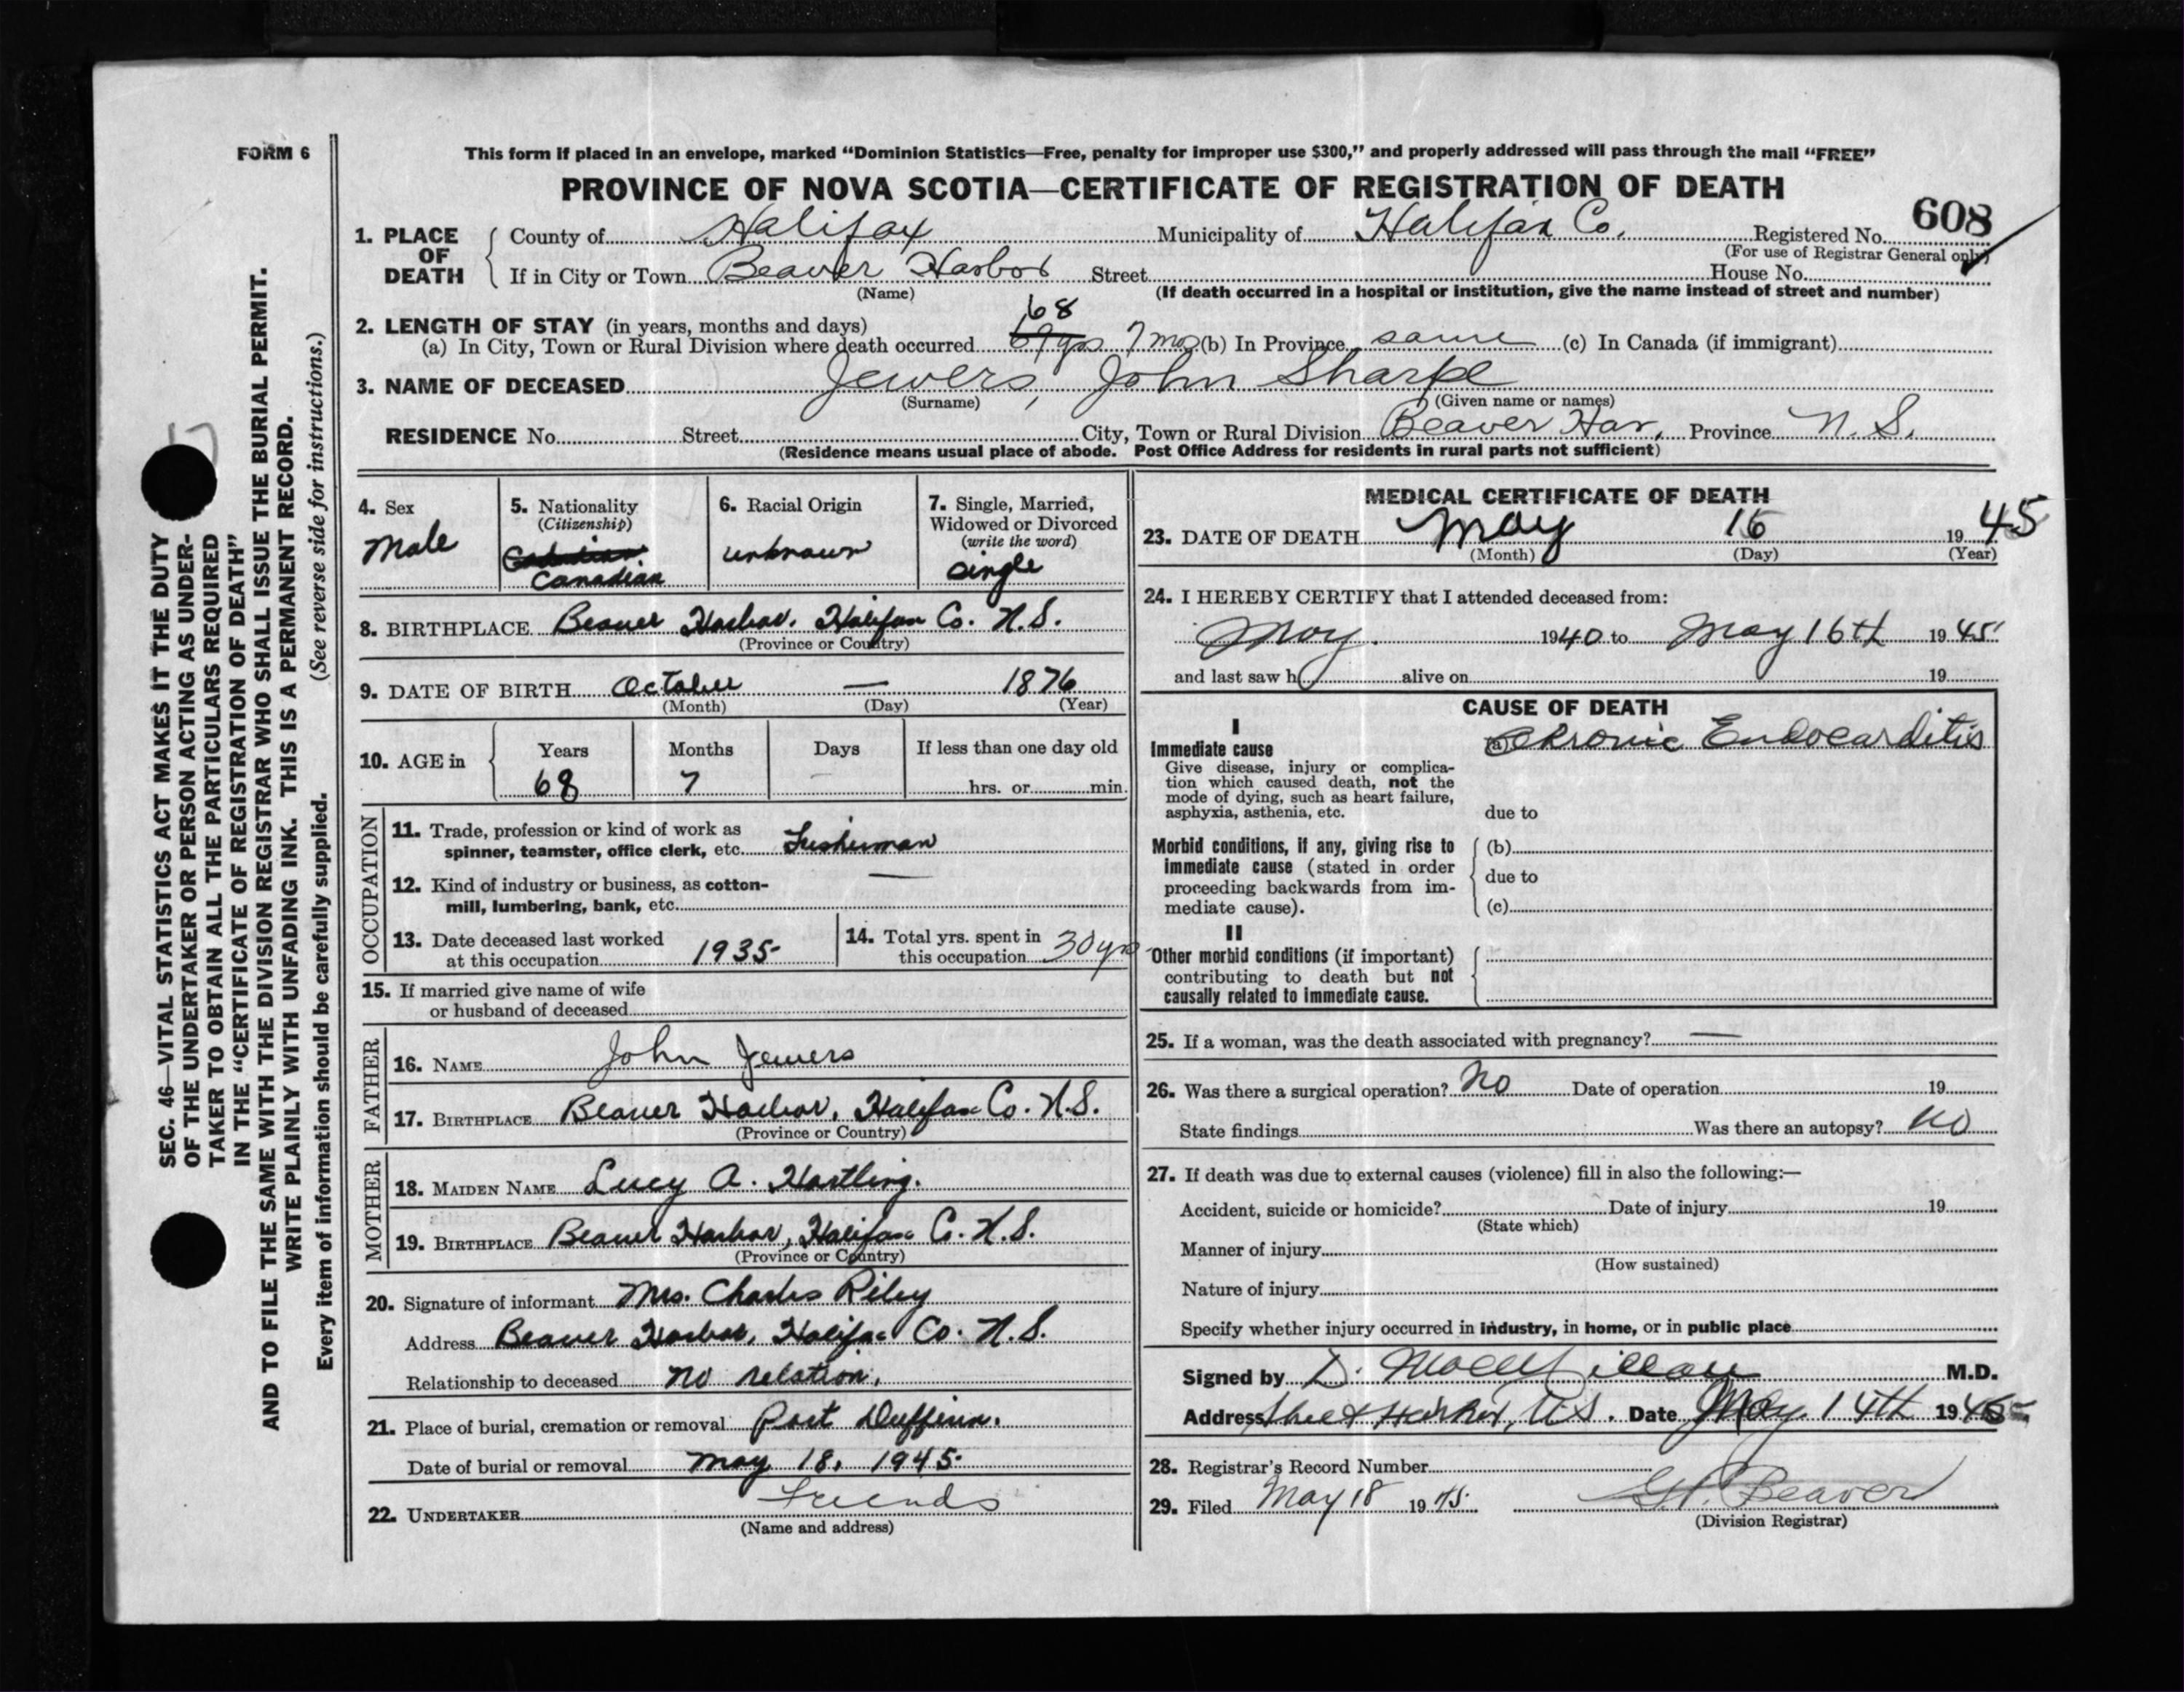 FORM 6
This form if placed in an envelope, marked “Dominion Statistics—Free, penalty for improper use $300,” and properly addressed will pass through the mail “FREE”
PROVINCE OF NOVA SCOTIA—CERTIFICATE OF REGISTRATION OF DEATH
608
1. PLACE OF DEATH
County of Halifax Municipality of Halifax Co. Registered No.
(For use of Registrar General only)
If in City or Town Beaver Harbor Street House No.
(Name) (If death occurred in a hospital or institution, give the name instead of street and number)
2. LENGTH OF STAY (in years, months and days) 68
(a) In City, Town or Rural Division where death occurred 69 yrs 7 mos (b) In Province same (c) In Canada (if immigrant)
3. NAME OF DECEASED Jewers, John Sharpe
(Surname) (Given name or names)
RESIDENCE No. Street City, Town or Rural Division Beaver Har. Province N.S.
(Residence means usual place of abode. Post Office Address for residents in rural parts not sufficient)
4. Sex
Male
5. Nationality
(Citizenship)
Canadian
6. Racial Origin
unknown
7. Single, Married,
Widowed or Divorced
(write the word)
single
8. BIRTHPLACE Beaver Harbor, Halifax Co. N.S.
(Province or Country)
9. DATE OF BIRTH October — 1876
(Month) (Day) (Year)
10. AGE in Years Months Days If less than one day old
68 7 - hrs. or min.
OCCUPATION
11. Trade, profession or kind of work as
spinner, teamster, office clerk, etc. Fisherman
12. Kind of industry or business, as cotton- —
mill, lumbering, bank, etc.
13. Date deceased last worked
at this occupation 1935
14. Total yrs. spent in
this occupation 30 yrs
15. If married give name of wife
or husband of deceased
FATHER
16. NAME John Jewers
17. BIRTHPLACE Beaver Harbor, Halifax Co. N.S.
(Province or Country)
MOTHER
18. MAIDEN NAME Lucy A. Hartling.
19. BIRTHPLACE Beaver Harbor, Halifax Co. N.S.
(Province or Country)
20. Signature of informant Mrs. Charles Riley
Address Beaver Harbor, Halifax Co. N.S.
Relationship to deceased no relation.
21. Place of burial, cremation or removal Port Dufferin.
Date of burial or removal May 18, 1945
22. UNDERTAKER friends
(Name and address)
MEDICAL CERTIFICATE OF DEATH
23. DATE OF DEATH May 16 1945
(Month) (Day) (Year)
24. I HEREBY CERTIFY that I attended deceased from:
May. 1940 to May 16th 1945
and last saw h alive on 19
CAUSE OF DEATH
I
Immediate cause (a) Chronic Endocarditis
Give disease, injury or complica-
tion which caused death, not the
mode of dying, such as heart failure,
asphyxia, asthenia, etc. due to
Morbid conditions, if any, giving rise to (b)
immediate cause (stated in order due to
proceeding backwards from im-
mediate cause). (c)
II
Other morbid conditions (if important)
contributing to death but not
causally related to immediate cause.
25. If a woman, was the death associated with pregnancy? —
26. Was there a surgical operation? No Date of operation 19
State findings Was there an autopsy? No
27. If death was due to external causes (violence) fill in also the following:—
Accident, suicide or homicide? Date of injury 19
(State which)
Manner of injury
(How sustained)
Nature of injury
Specify whether injury occurred in industry, in home, or in public place
Signed by D. M.D.
Address Sheet Harbor, N.S. Date May 14th 1945
28. Registrar's Record Number
29. Filed May 18 1945. Beaver
(Division Registrar)
SEC. 46—VITAL STATISTICS ACT MAKES IT THE DUTY
OF THE UNDERTAKER OR PERSON ACTING AS UNDER-
TAKER TO OBTAIN ALL THE PARTICULARS REQUIRED
IN THE “CERTIFICATE OF REGISTRATION OF DEATH”
AND TO FILE THE SAME WITH THE DIVISION REGISTRAR WHO SHALL ISSUE THE BURIAL PERMIT.
WRITE PLAINLY WITH UNFADING INK. THIS IS A PERMANENT RECORD.
Every item of information should be carefully supplied. (See reverse side for instructions.)